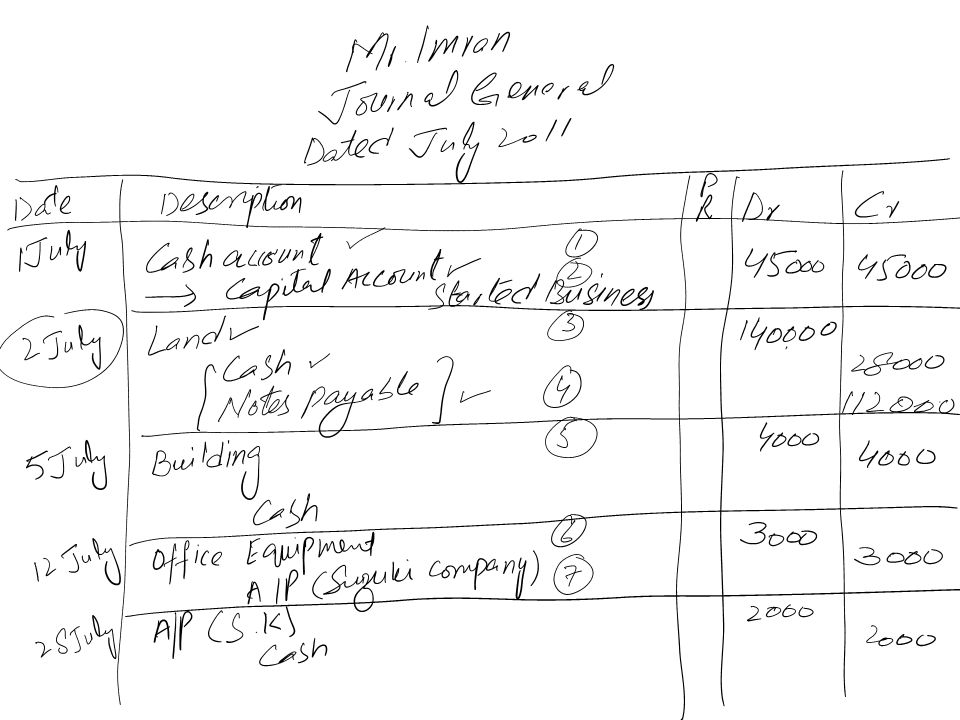 Mr. Imran
Journal General
Dated July 2011
Date Description PR Dr Cr
1 July Cash account ① 45000 45000
→ Capital Account ②
Started Business
2 July Land ③ 140,000
Cash 28000
Notes Payable ④ 112000
5 July Building ⑤ 4000
Cash 4000
12 July Office Equipment ⑥ 3000
A/P (Suzuki company) ⑦ 3000
28 July A/P (S.K) 2000
Cash 2000